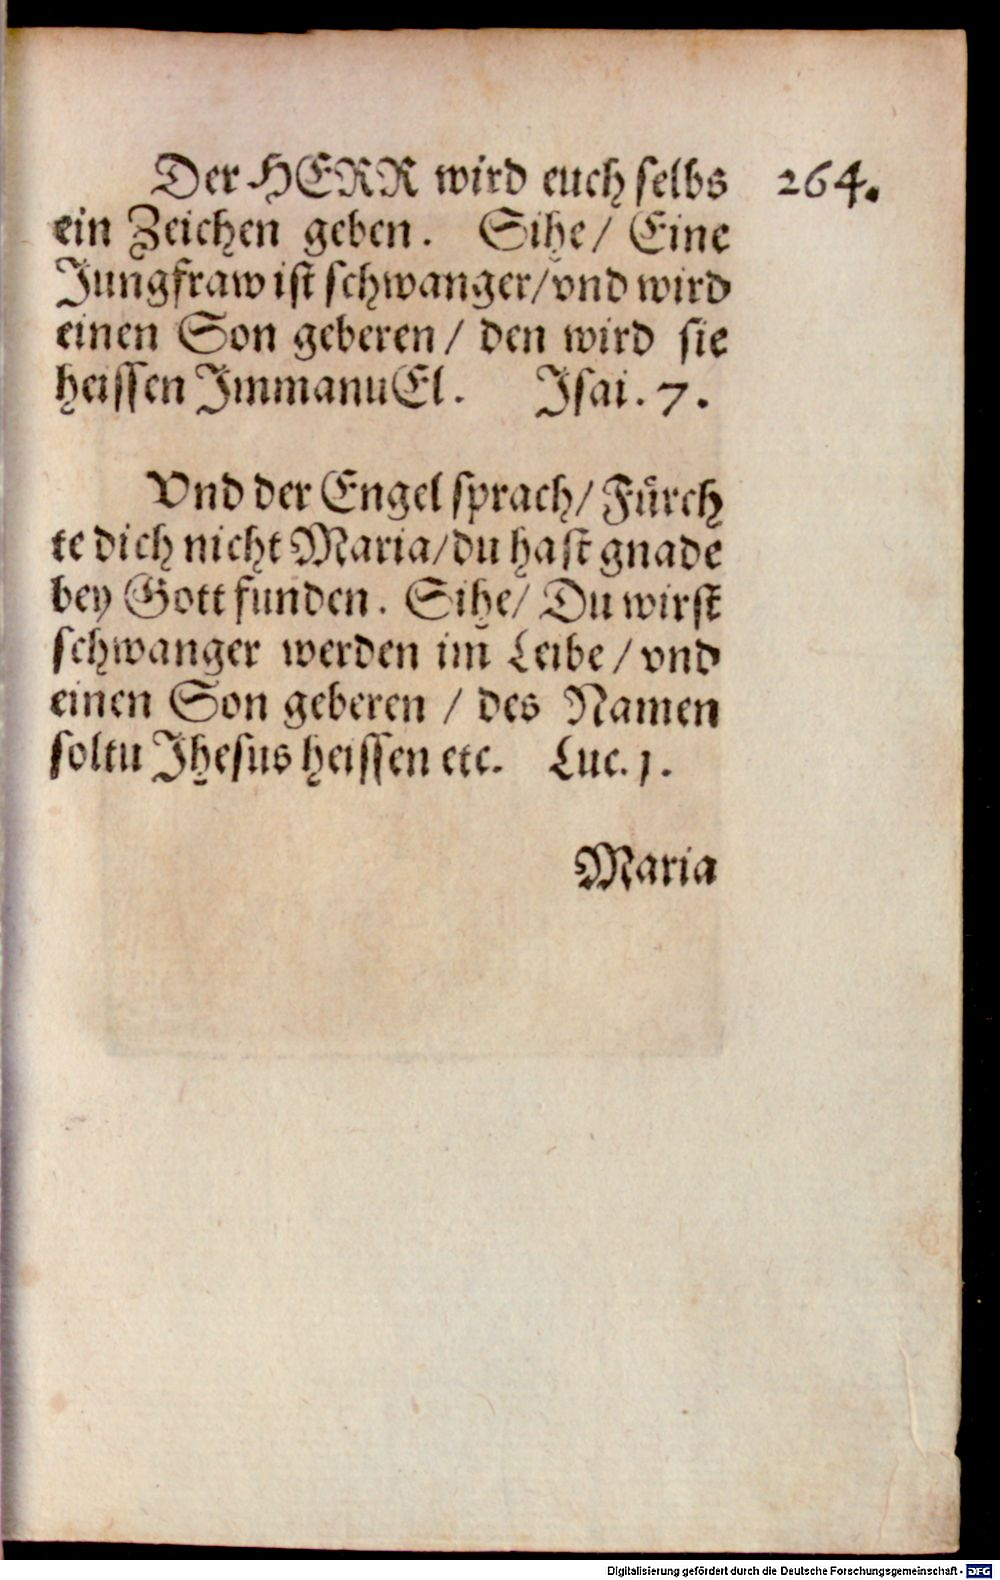 Der HERR wird euch selbs 264.
ein Zeichen geben. Sihe/ Eine
Jungfraw ist schwanger/vnd wird
einen Son geberen / den wird sie
heissen JmmanuEl. Jsai. 7.
Vnd der Engel sprach/ Fürch
te dich nicht Maria/du hast gnade
bey Gott funden. Sihe/ Du wirst
schwanger werden im Leibe / vnd
einen Son geberen / des Namen
soltu Jhesus heissen etc. Luc. 1.
Maria
Digitalisierung gefördert durch die Deutsche Forschungsgemeinschaft - DFG